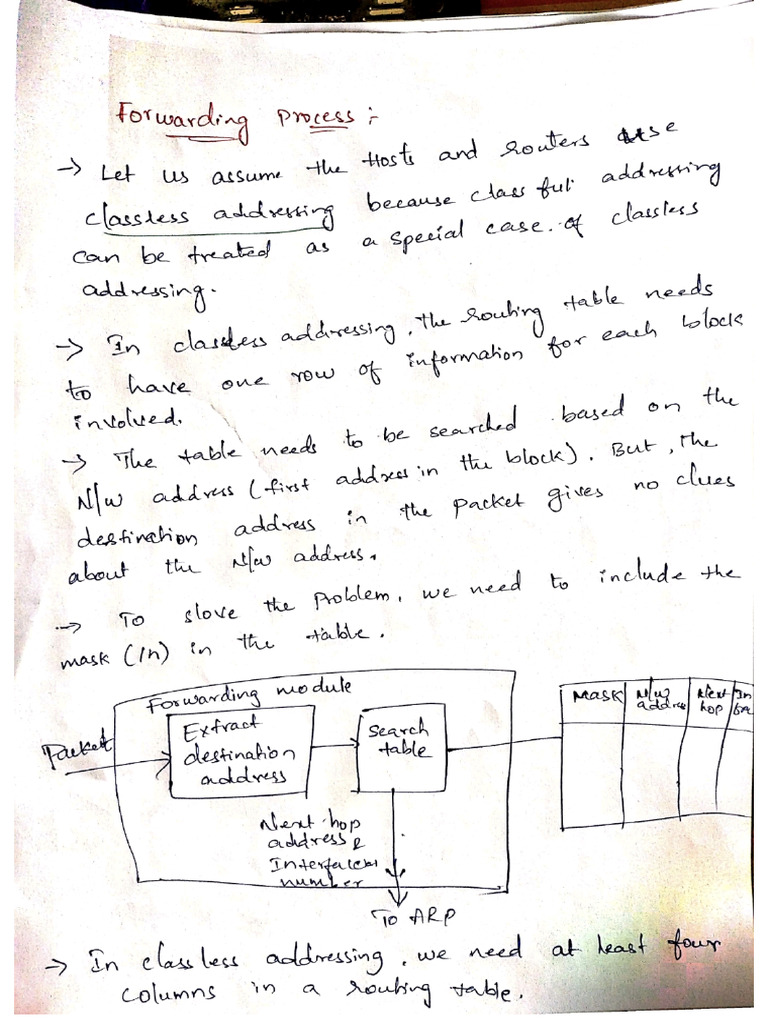 Forwarding process :-
→ Let us assume the Hosts and routers use
classless addressing because class ful addressing
can be treated as a special case. of classless
addressing.
→ In classless addressing, the routing table needs
to have one row of information for each block
involved.
→ The table needs to be searched based on the
N/w address (first address in the block). But, the
destination address in the packet gives no clues
about the N/w address.
→ To slove the problem, we need to include the
mask (/n) in the table.
Forwarding module
Packet
Extract
destination
address
Search
table
Mask
N/w
address
Next
hop
Next hop
address &
number
To ARP
→ In classless addressing, we need at least four
columns in a routing table.